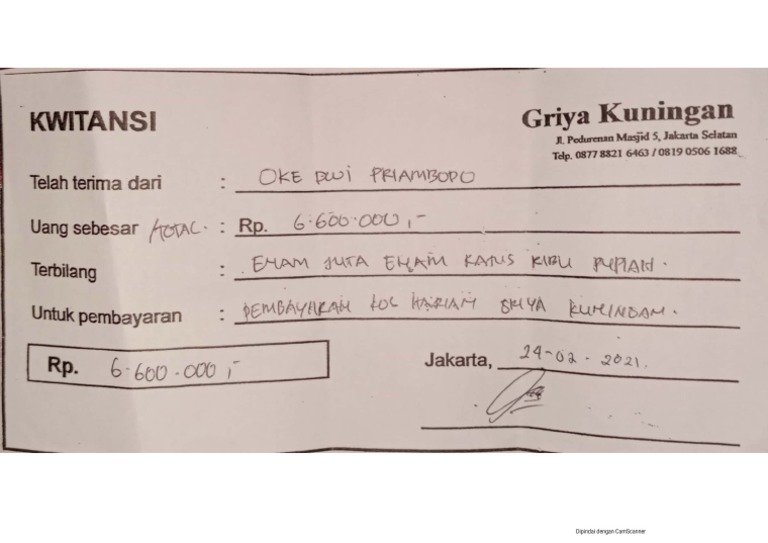 KWITANSI
Griya Kuningan
Jl. Pedurenan Masjid 5, Jakarta Selatan
Telp. 0877 8821 6463 / 0819 0506 1688
Telah terima dari : OKE DWI PRIAMBODO
Uang sebesar TOTAL. : Rp. 6.600.000,-
Terbilang : ENAM JUTA ENAM RATUS RIBU RUPIAH.
Untuk pembayaran : PEMBAYARAN KOS HARIAN GRIYA KUNINGAN.
Rp. 6.600.000,-
Jakarta, 24-02-2021.
Dipindai dengan CamScanner